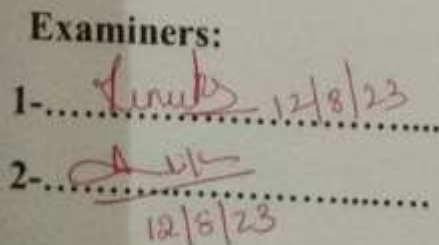 Examiners:
1-..................... 12/8/23
2-.....................
12/8/23